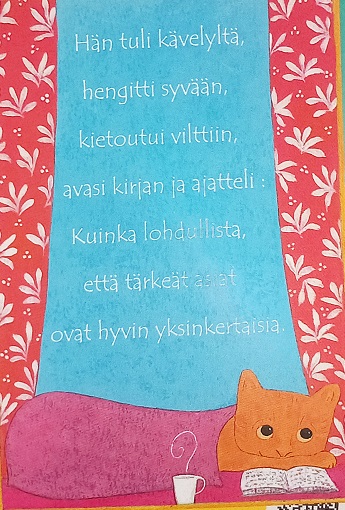 Hän tuli kävelyltä,
hengitti syvään,
kietoutui vilttiin,
avasi kirjan ja ajatteli :
Kuinka lohdullista,
että tärkeät asiat
ovat hyvin yksinkertaisia.